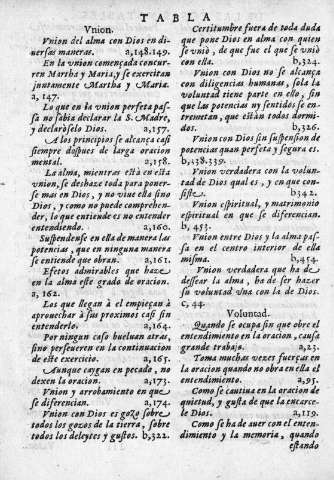 TABLA
Vnion.
Vnion del alma con Dios en di-
uersas maneras. a,148.149.
En la vnion començada concur-
ren Martha y Maria, y se exercitan
juntamente Martha y Maria.
a, 147.
Lo que en la vnion perfeta pas-
sa no sabia declarar la S. Madre,
y declaròselo Dios. a,157.
A los principios se alcança casi
siempre despues de larga oracion
mental. a,158.
La alma, mientras està en esta
vnion, se deshaze toda para poner-
se mas en Dios, y no viue ella sino
Dios, y como no puede comprehen-
der, lo que entiende es no entender
entendiendo. a,160.
Suspendense en ella de manera las
potencias, que en ninguna manera
se entiende que obran. a,161.
Efetos admirables que haze
en la alma este grado de oracion.
a, 162.
Los que llegan à el empieçan à
aprouechar à sus proximos casi sin
entenderlo. a,164.
Por ningun caso bueluan atras,
sino perseueren en la continuacion
de este exercicio. a,165.
Aunque caygan en pecado, no
dexen la oracion. a,173.
Vnion y arrobamiento en que
se diferencian. a,174.
Vnion con Dios es gozo sobre
todos los gozos de la tierra, sobre
todos los deleytes y gustos. b,322.
Certitumbre fuera de toda duda
que pone Dios en alma con quien
se vniò, de que fue el que se vniò
con ella. b,324.
Vnion con Dios no se alcança
con diligencias humanas, sola la
voluntad tiene parte en ello, sin
que las potencias ny sentidos se en-
tremetan, que estàn todos dormi-
dos. b,326.
Vnion con Dios sin suspension de
potencias quan perfeta y segura es.
b,338.339.
Vnion verdadera con la volun-
tad de Dios qual es, y en que con-
siste. b342.
Vnion espiritual, y matrimonio
espiritual en que se diferencian.
b, 453.
Vnion entre Dios y la alma pas-
sa en el centro interior de ella
misma. b,454.
Vnion verdadera que ha de
dessear la alma, ha de ser hazer
su voluntad vna con la de Dios.
c, 44.
Voluntad.
Quando se ocupa sin que obre el
entendimiento en la oracion, causa
grande trabajo. a,23.
Toma muchas vezes fuerças en
la oracion quando no obra en ella el
entendimiento. a,95.
Como se cautiua en la oracion de
quietud, y gusta de que la encarce-
le Dios. a,119.
Como se ha de auer con el enten-
dimiento y la memoria, quando
estando